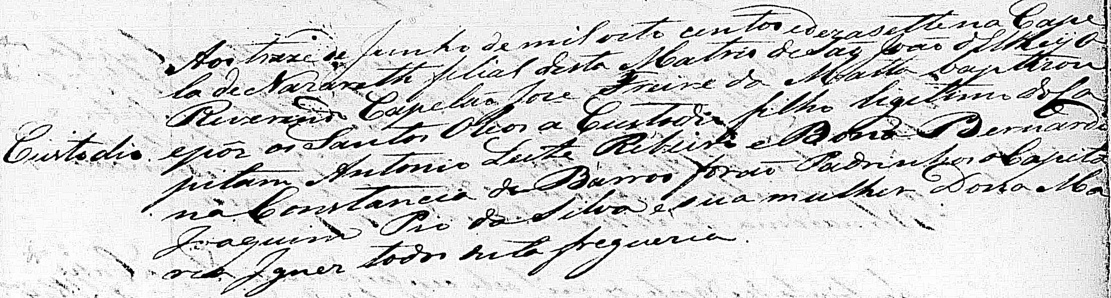 Aos treze de Junho de mil oito centos e dezasette na Cape
la de Nazareth filial desta Matris de Sao João d'El Rey o
Reverendo Capelão Jose Freire da Matta baptizou
Custodio epoz os Santos Oleos a Custodio filho ligitimo do Ca
pitam Antonio Leite Ribeiro e Dona Bernardi
na Constancia de Barros forão Padrinhos o Capitão
Joaquim Pio da Silva e sua mulher Dona Ma
ria Ignez todos desta freguezia.